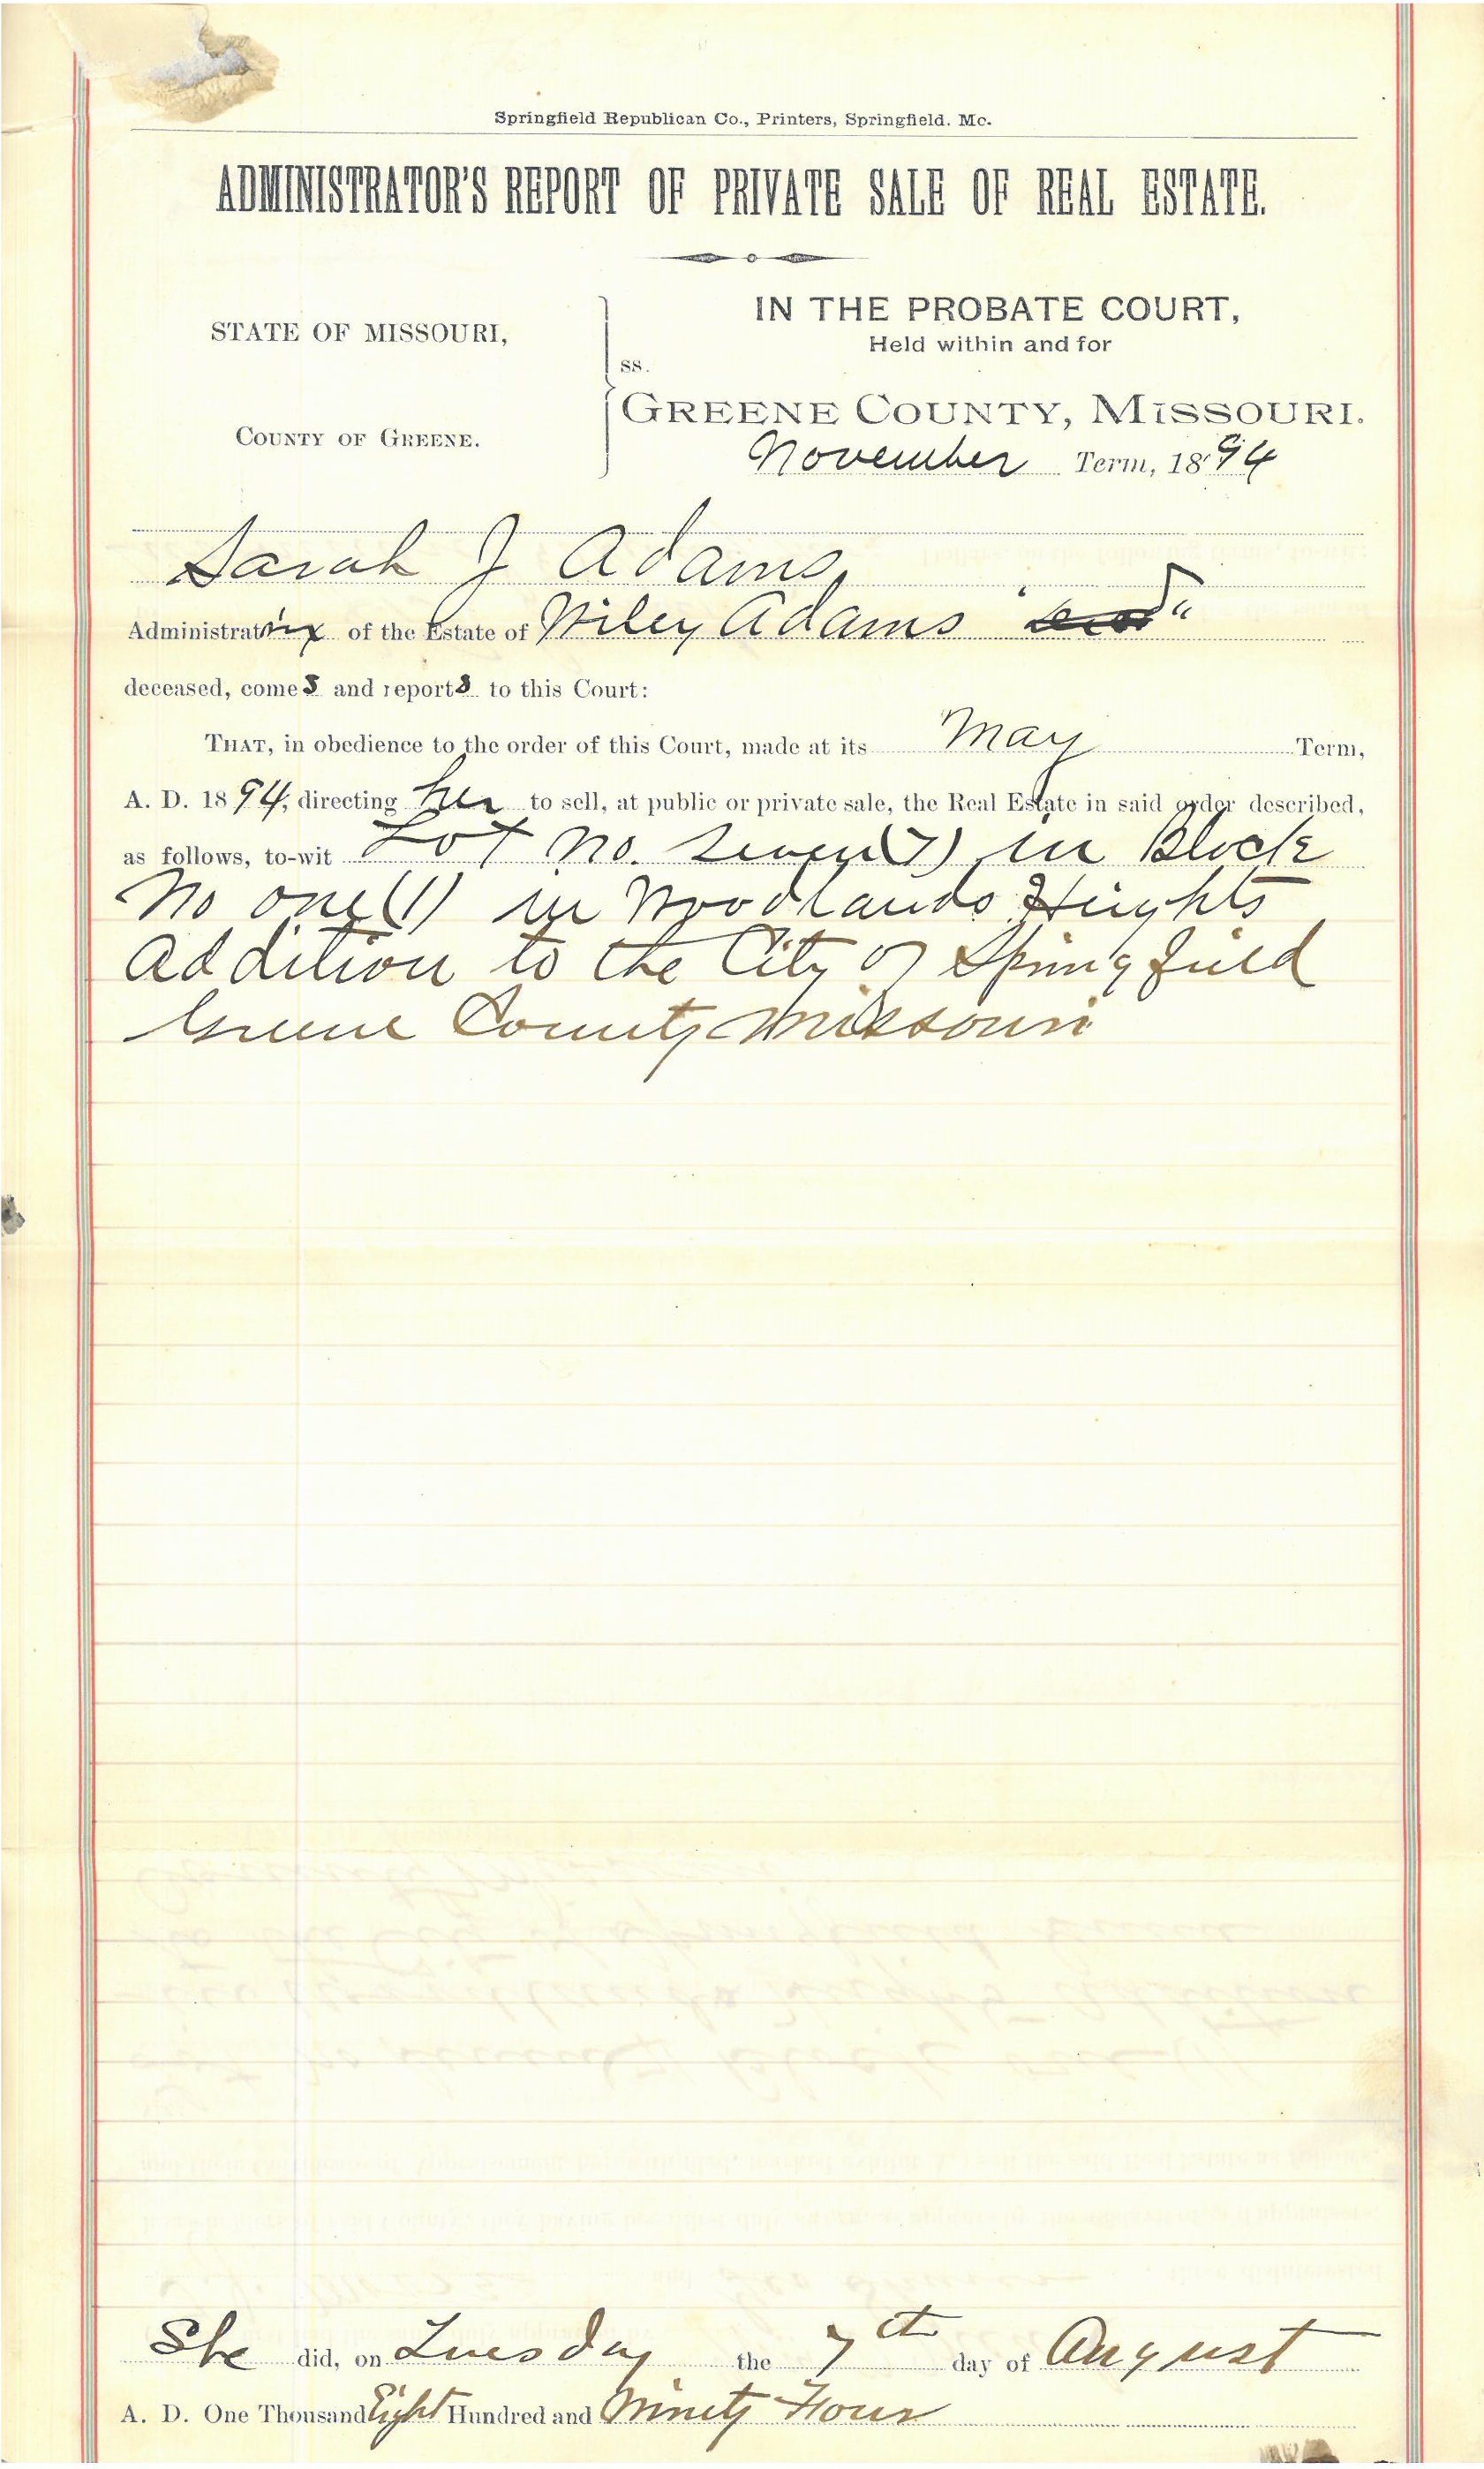 Springfield Republican Co., Printers, Springfield. Mo.
ADMINISTRATOR'S REPORT OF PRIVATE SALE OF REAL ESTATE.
IN THE PROBATE COURT,
STATE OF MISSOURI,
Held within and for
ss.
GREENE COUNTY, MISSOURI.
COUNTY OF GREENE.
November Term, 1894
Sarah J Adams,
Administratrix of the Estate of Wiley Adams
deceased, comes and reports to this Court:
THAT, in obedience to the order of this Court, made at its May Term,
A. D. 1894, directing her to sell, at public or private sale, the Real Estate in said order described,
as follows, to-wit Lot No. Seven (7) in Block
No one (1) in Woodlands Heights
Addition to the City of Springfield
Greene County Missouri
She did, on Tuesday the 7th day of August
A. D. One Thousand Eight Hundred and Ninety Four